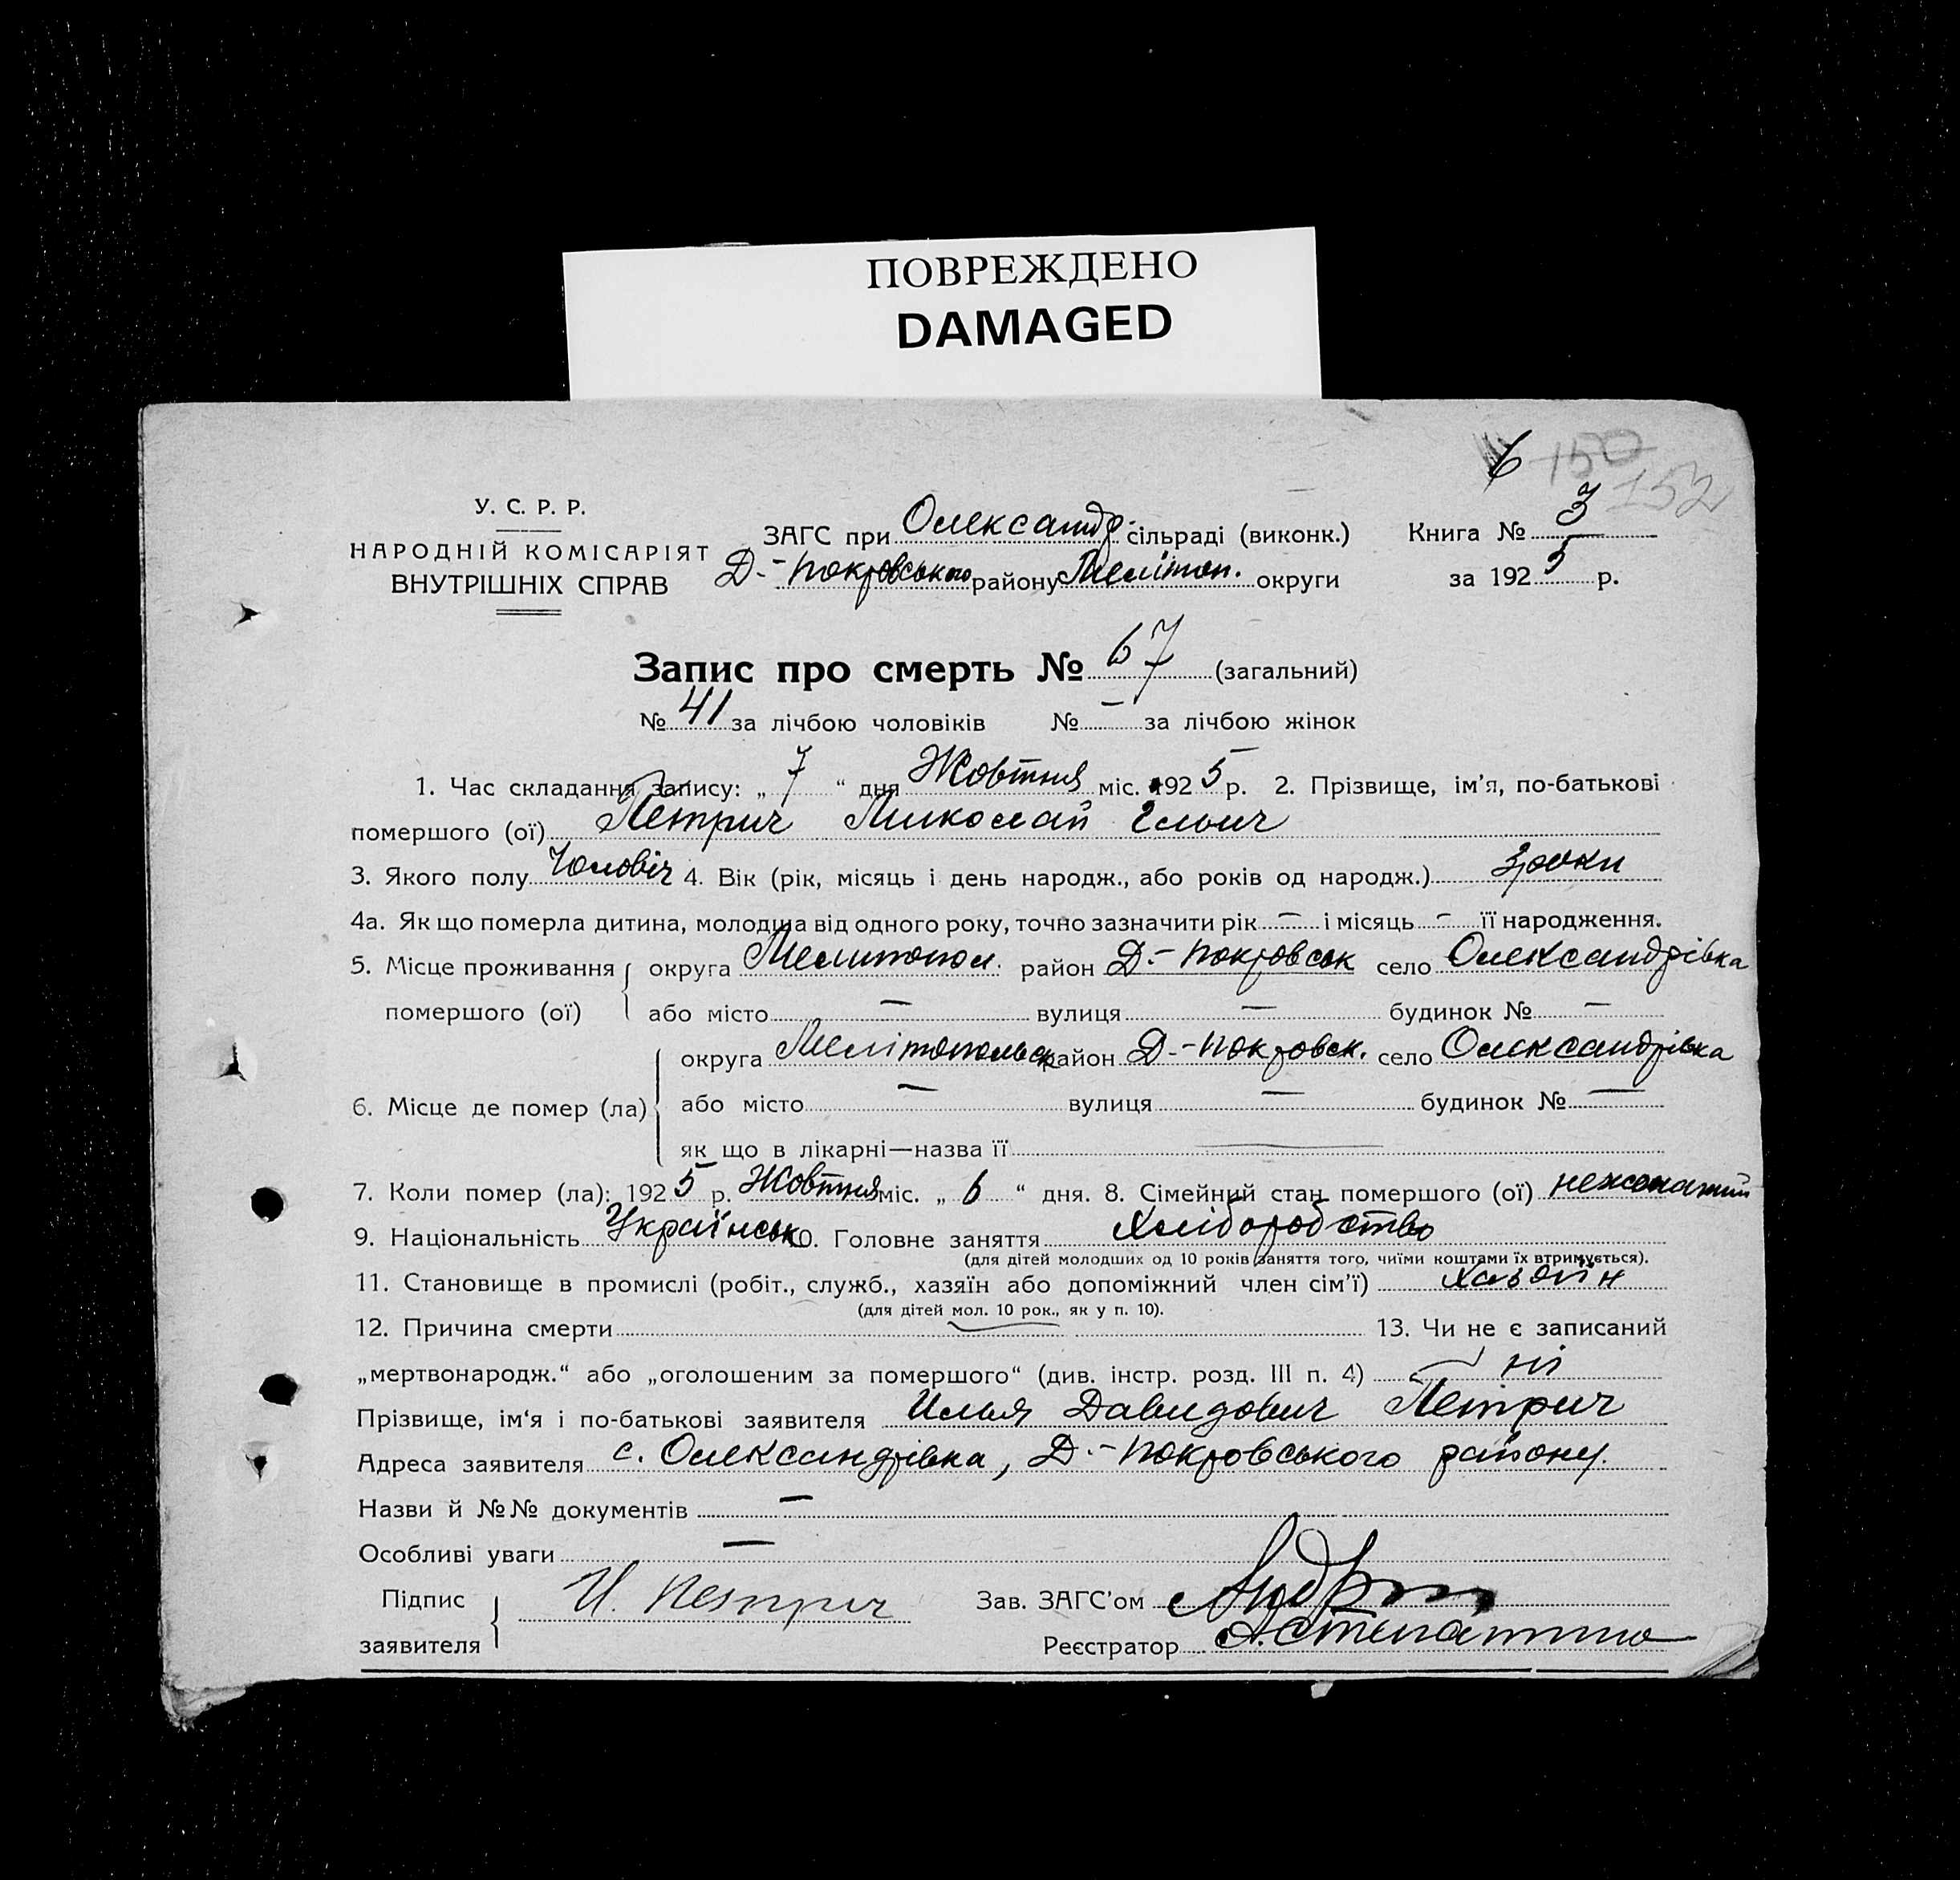 ПОВРЕЖДЕНО
DAMAGED
6 150
152
У. С. Р. Р.
НАРОДНІЙ КОМІСАРІЯТ
ВНУТРІШНІХ СПРАВ
ЗАГС при Олександр. сільраді (виконк.) Книга № 3
Д.-Покровського району Меліттоп. округи за 1925 р.
Запис про смерть № 67 (загальний)
№ 41 за лічбою чоловіків № — за лічбою жінок
1. Час складання запису: „ 7 “ дня Жовтня міс. 1925 р. 2. Прізвище, ім'я, по-батькові
помершого (ої) Петрич Миколай Ільич
3. Якого полу Чоловіч 4. Вік (рік, місяць і день народж., або років од народж.) 3 роки
4а. Як що померла дитина, молодша від одного року, точно зазначити рік — і місяць — її народження.
5. Місце проживання помершого (ої) округа Мелитопол. район Д.-Покровськ село Олександрівка
або місто — вулиця — будинок № —
6. Місце де помер (ла) округа Мелітопольск район Д.-Покровск. село Олександрівка
або місто — вулиця — будинок № —
як що в лікарні—назва її —
7. Коли помер (ла): 1925 р. Жовтня міс. „ 6 “ дня. 8. Сімейний стан помершого (ої) нежонатий
9. Національність Українськ 10. Головне заняття Хліборобство
(для дітей молодших од 10 років заняття того, чиїми коштами їх втримується).
11. Становище в промислі (робіт., служб., хазяїн або допоміжний член сім'ї) хазяїн
(для дітей мол. 10 рок., як у п. 10).
12. Причина смерти — 13. Чи не є записаний
„мертвонародж.“ або „оголошеним за помершого“ (див. інстр. розд. III п. 4) ні
Прізвище, ім'я і по-батькові заявителя Илья Давидович Петрич
Адреса заявителя с. Олександрівка, Д.-Покровського району.
Назви й №№ документів —
Особливі уваги —
Підпис заявителя И. Петрич Зав. ЗАГС'ом
Реєстратор